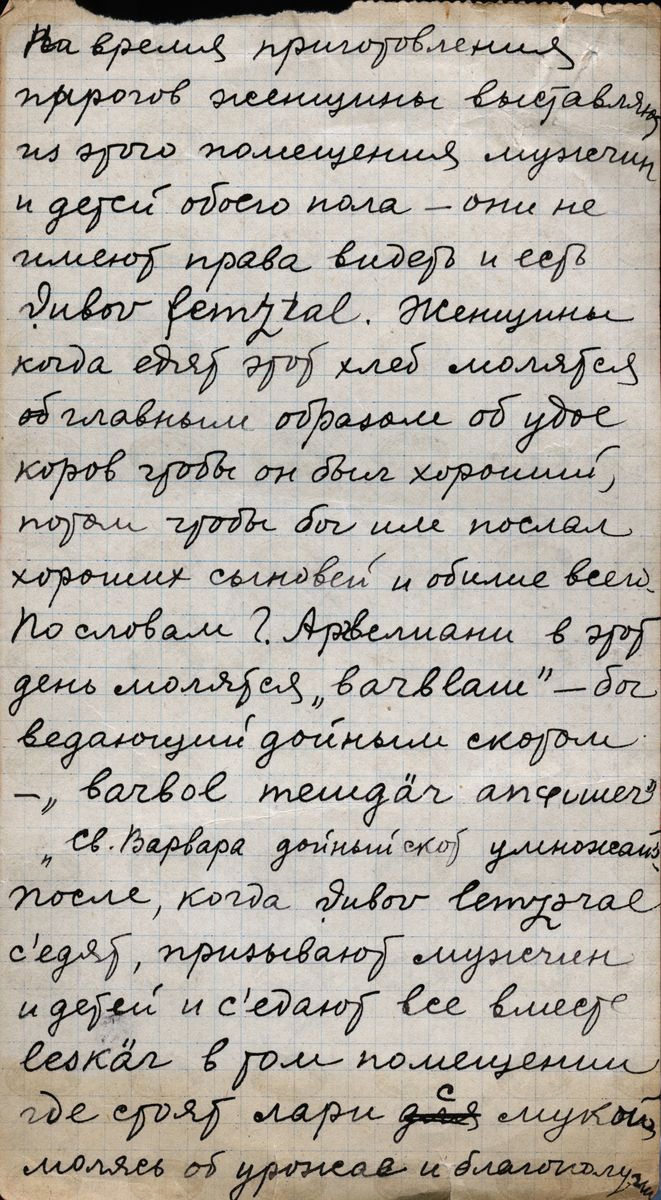 На время приготовления
пирогов женщины выставляют
из этого помещения мужчин
и детей обоего пола – они не
имеют права видеть и есть
Женщины
когда едят этот хлеб молятся
главным образом об удое
коров чтобы он был хороший,
потом чтобы бог им послал
хороших сыновей и обилие всего.
По словам Г. в этот
день молятся – бог
ведающий дойным скотом
– „
„Св. Варвара дойный скот умножай"
После, когда
с'едят, призывают мужчин
и детей и с'едают все вместе
leskär в том помещении
где стоят лари с мукой
молясь об урожае и благополучии